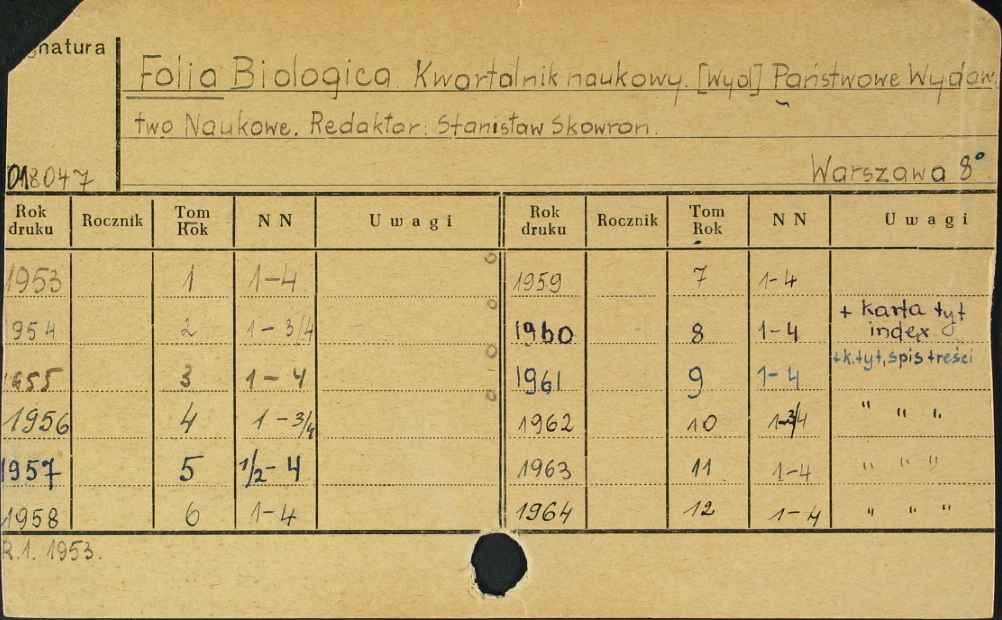 gnatura
Folia Biologica. Kwartalnik naukowy. [Wyd] Państwowe Wydaw
two Naukowe. Redaktor: Stanisław Skowron.
018047 Warszawa 8°
Rok druku Rocznik Tom Rok N N Uwagi Rok druku Rocznik Tom Rok N N Uwagi
1953 1 1-4 1959 7 1-4
954 2 1-3/4 1960 8 1-4 + karta tyt index
1955 3 1-4 1961 9 1-4 +k.tyt, spis treści
1956 4 1-3/4 1962 10 1-3/4 " " "
1957 5 1/2-4 1963 11 1-4 " " "
1958 6 1-4 1964 12 1-4 " " "
R.1. 1953.